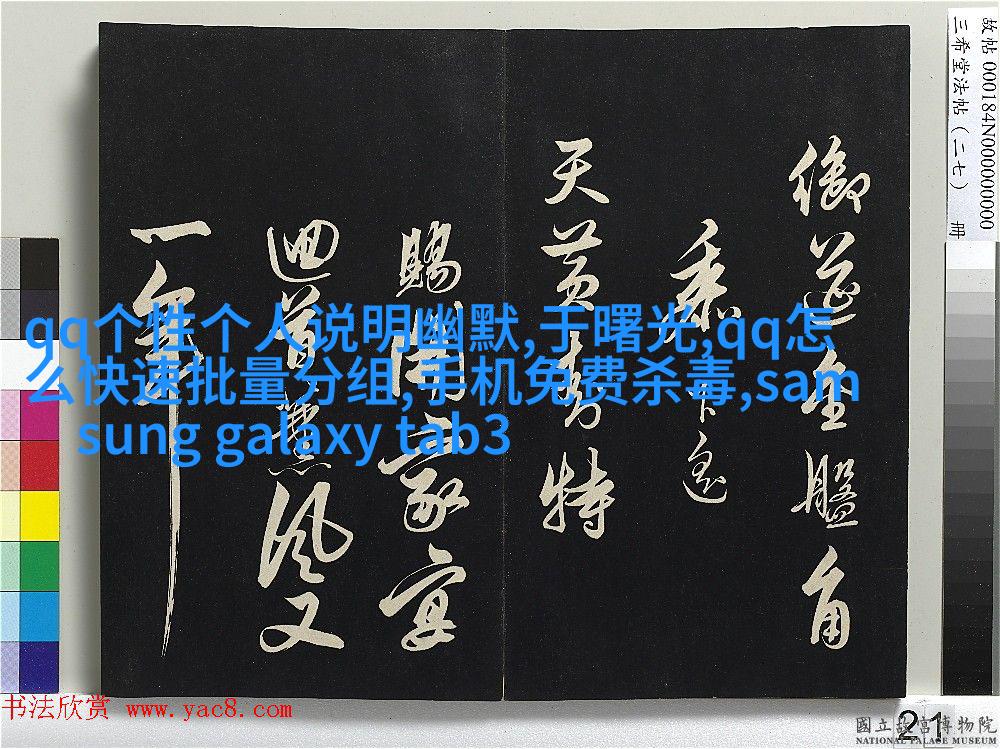 故帖 000184N000000000
三希堂法帖(二七) 冊
御筵金盤角
黍下遙
天黃封特
賜開家宴
迴首薰風又
一年
qq个性个人说明幽默,于曙光,qq怎
么快速批量分组,手机免费杀毒,sam
sung galaxy tab3
书法欣赏 www.yac8.com
21
國立故宮博物院
NATIONAL PALACE MUSEUM